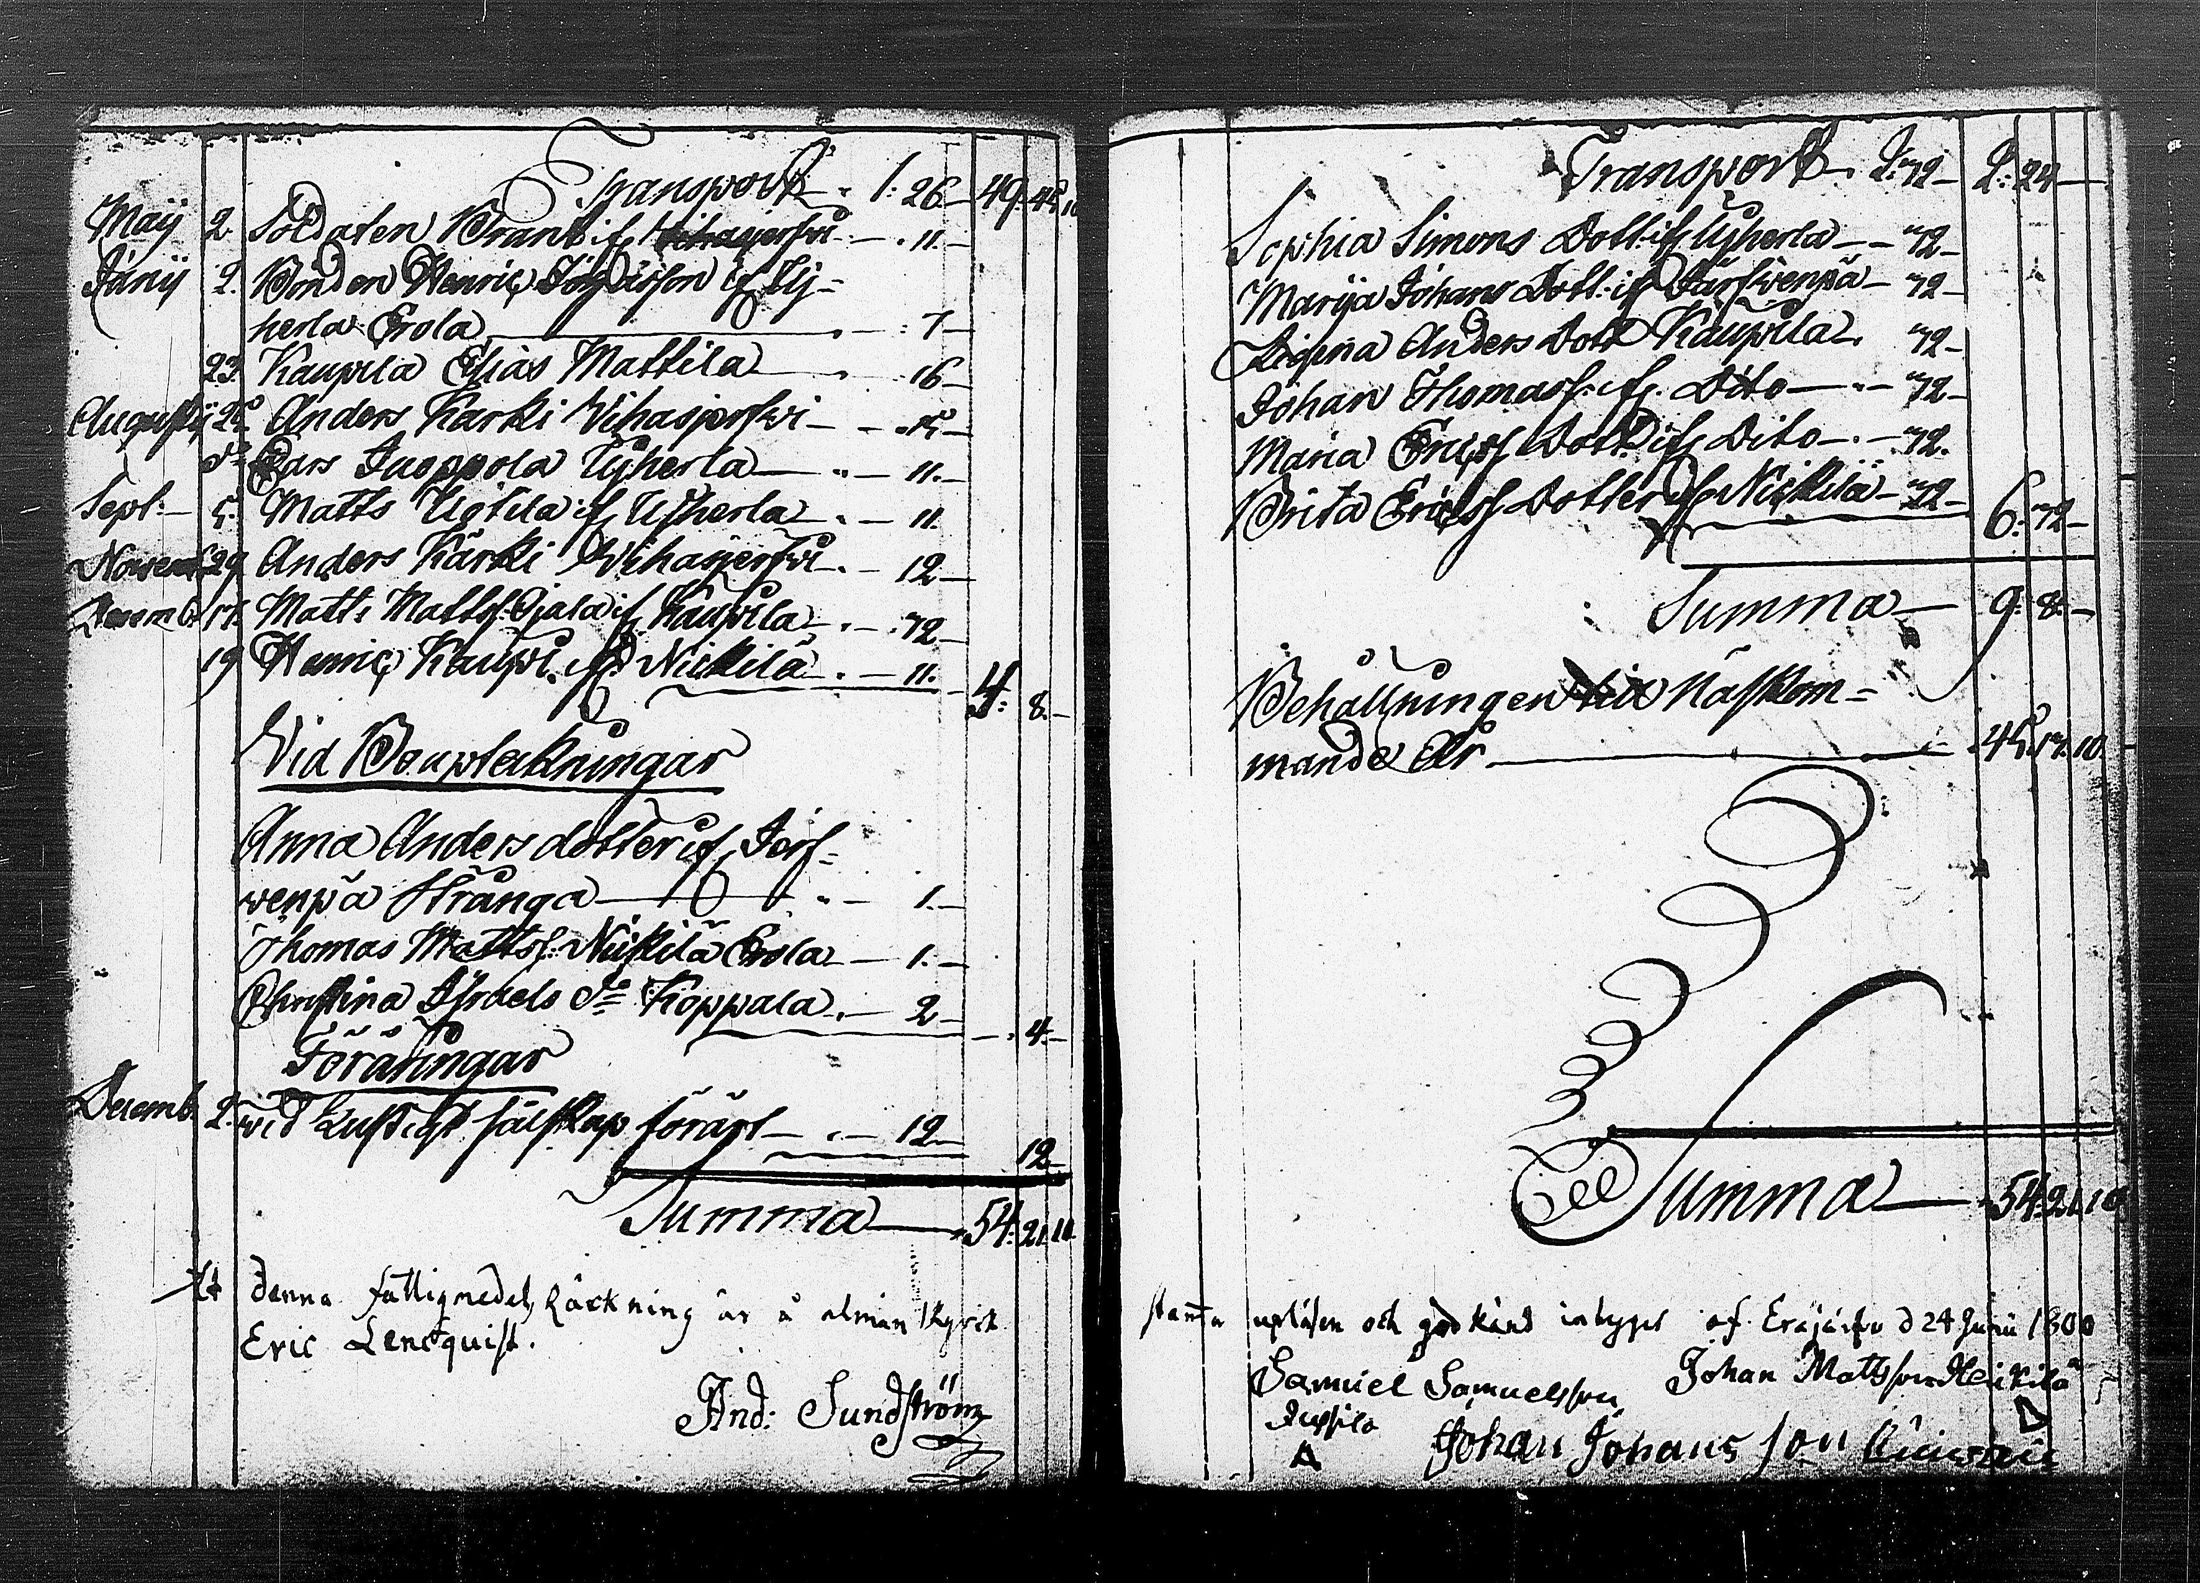 Transport . 1: 26 — 49: 45. 10
Maij 2 Soldaten Brant if — . 11. —
Junij 2. Bonden Henric if Uj=
herla Erola — . — : 7 —
23. Kaupila Elias Mattila — . — 16 —
Augustij 25 Anders Karki Vihasjerfvi — . 15 —
do Lars Juoppola Ujherla — . — 11. —
Sept: — 5. Matts Ugtila if Ujherla — . — 11.
Novemb 29 Anders Kärki Wihasjerfvi . — 12 —
Decemb. 17. Matts Mattss. Ojala if Kaupila — . — 72 —
19 Henric Kaupi. if Nickilä — . — 11. — 4: 8. —
Vid Bouptekningar
Anna Anders dotter if Jerf=
wenpä Stränga — . — 1. —
Thomas Mattss. Nickilä Erola — 1. —
Christina Isra​els do Koppala . — 2 — . 4. —
Föräringar
Decemb. 2. wid Lustigt sälskap förärt — . — 12 — 12 —
Summa — 54: 21. 10.
At denna fattigmedels Räckning är å almän Kyrck
Eric Lencquist.
And: Sundström
Transport . 2: 72 — 2: 24 —
Sophia Simons Dott. if Ujherla — 72 —
Marija Johans Dott: if Järfwenpä — 72 —
Regina Anders Dott Kaupila . 72 —
Johan Thomass. if. Dito — . — 72 —
Maria Ericss Dott. if Dito — . — 72.
Brita Ericss Dotter if Nickilä — 72 — 6: 72 —
Summa — 9: 8: —
Behållningen till Nästkom=
mande År — . 45. 17. 10.
Summa — 54: 21. 10
stämma upläsen och godkänd intygar af Eräjärfvi d 24 Junii 1800
Samuel Samuelsson Johan Matsson Heikilä
Jussila
Johan Johans son